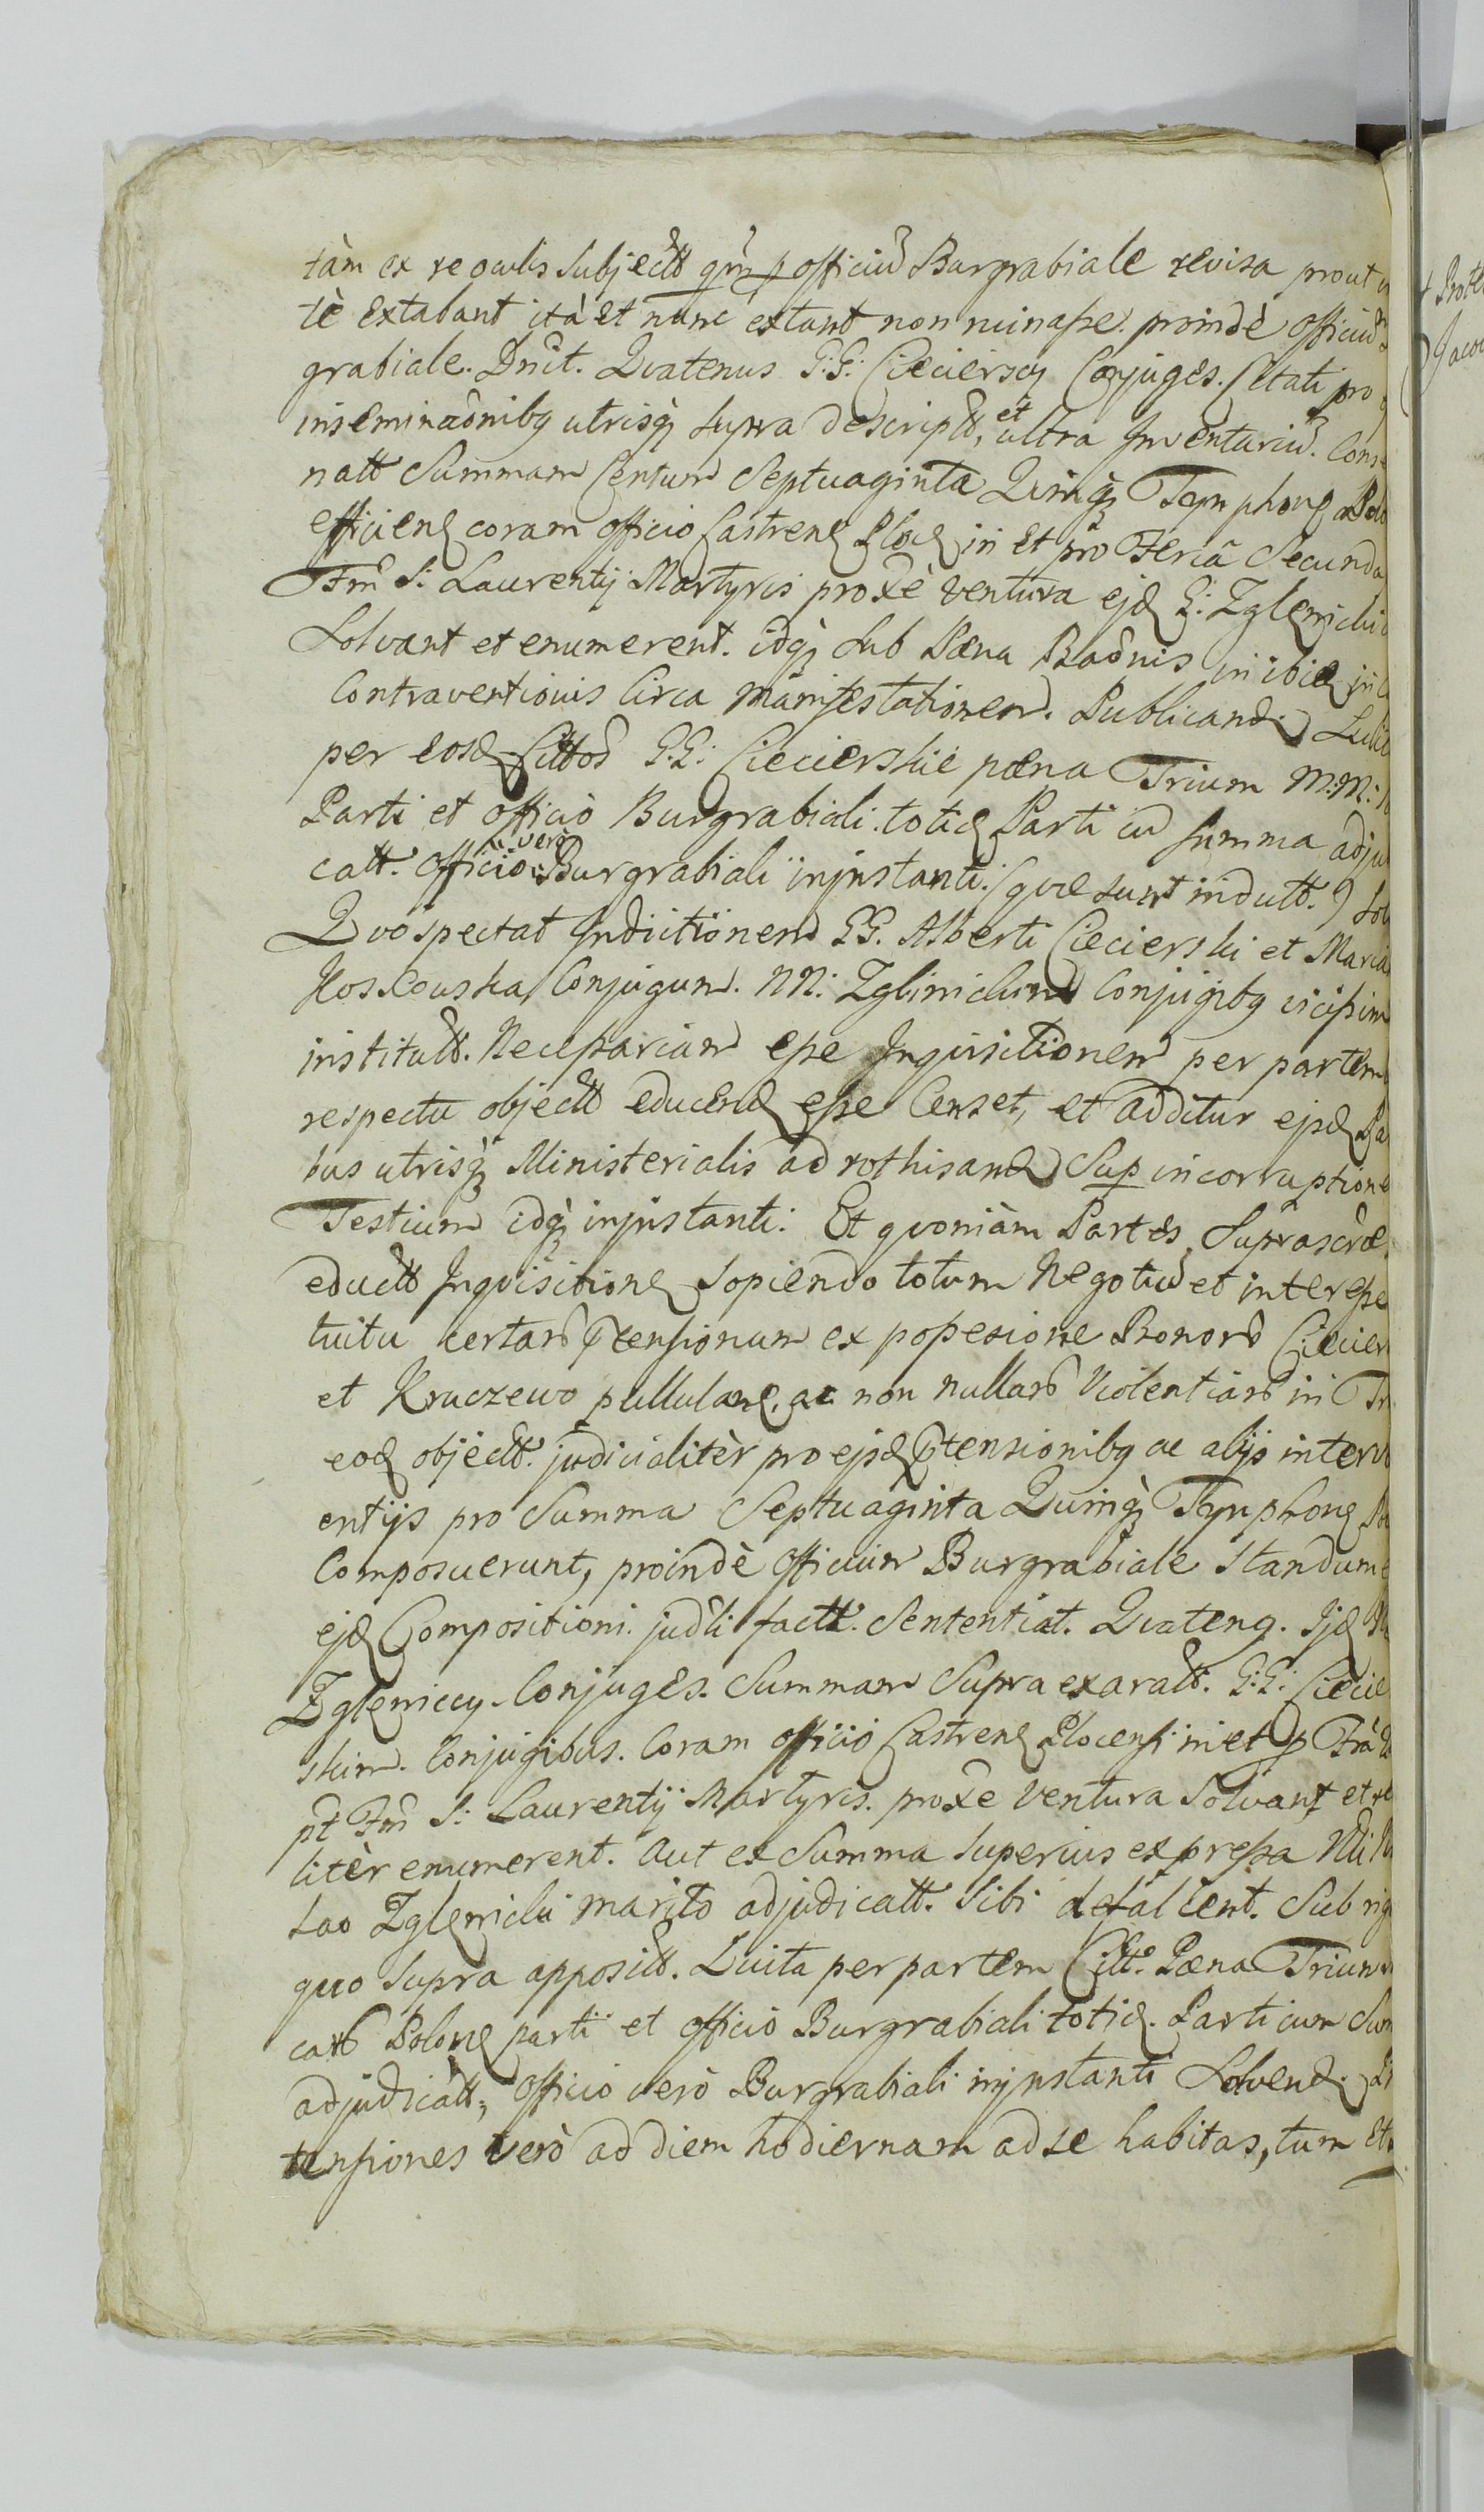 tàm ex re oculis Subjectt qm̃ p officiũ Burgrabiale revisa prout
tè extabant ità et nunc extant non ruinasse. proindè officiũ
grabiale. Dnit. Quatenus G:G: Ciecierscy Conjuges. Citati pro
inseminaõnibq utrisq̀ supra descriptt, et ultra Inventariũ. Cons
natt Summam Centum Septuaginta Quinq̀ Tymphonꝫ Polo
efficienꝫ coram officio Castrenꝫ Plocꝫ in et pro Feria Secunda
Fm̃ S: Laurentij Martyris proxè ventura ejdꝫ G: Zglenicki
Solvant et enumerent. idq̀ sub Pæna Baõnis in ibidꝫ in
Contraventionis Circa manifestationem. Publicand. Luit
per eosdꝫ Cittos G:G: Ciecierskie pæna Trium M:M:
Parti et officio Burgrabiali totidꝫ Parti cũ summa adju
catt. officio vero Burgrabiali injnstanti. (quæ sunt indutt.) Sol
Quo spectat Indictionem GG. Alberti Ciecierski et Maria
Koskowska Conjugum. NN: Zglinickim Conjugibq vicissim
institutt. Necessariam esse Inquisitionem per partem
respectu objectt educendꝫ esse Censet, et additur ejsdꝫ Pa
bus utrisq̀ Ministerialis ad rothisandꝫ Sup incorruptione
Testium idq̀ injnstanti: Et quoniàm Partes Suprascræ
eductt Inquisitionꝫ Sopiendo totum Negotiũ et interesse
tuitu certarũ p̃tensionum ex possesione Bonorũ Ciecier
et Kruczewo pullulanꝫ. ac non nullarũ Violentiarũ in
eodꝫ objectt. judicialitèr pro ejsdꝫ p̃tensionibq ac alijs interv
entijs pro Summa Septuaginta Quinq̀ Tymphonꝫ
Composuerunt, proindè officium Burgrabiale Standum
ejdꝫ Compositioni. judli factt. Sententiat. Quatenq. Ijdꝫ
Zgleniccy. Conjuges. Summam Supra exaratt. G:G: Ciecie
skim. Conjugibus. Coram officio Castrenꝫ Plocensi in et p Fria
pt Fm̃ S: Laurentij Martyris. proxe ventura Solvant et re
litèr enumerent. Aut ex Summa superius expressa Ndi
lao Zglenicki marito adjudicatt. Sibi defalcent. Sub rig
quo supra apposítt. Luita per partem Citt. Pæna Trium
carũ Polonꝫ parti et officio Burgrabiali totidꝫ. Parti cum Sum
adjudicatt, officio verò Burgrabiali injnstanti Solvend.
tensiones verò ad diem hodiernam ad se habitas, tum Et